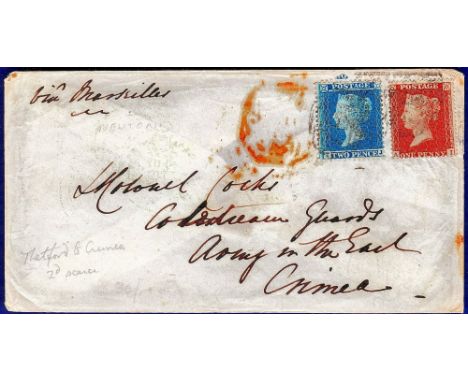 via Marseilles
POSTAGE
TWO PENCE
POSTAGE
ONE PENNY
Colonel Cocks
Coldstream Guards
Army in the East
Crimea
Thetford & Crimea
2d scarce